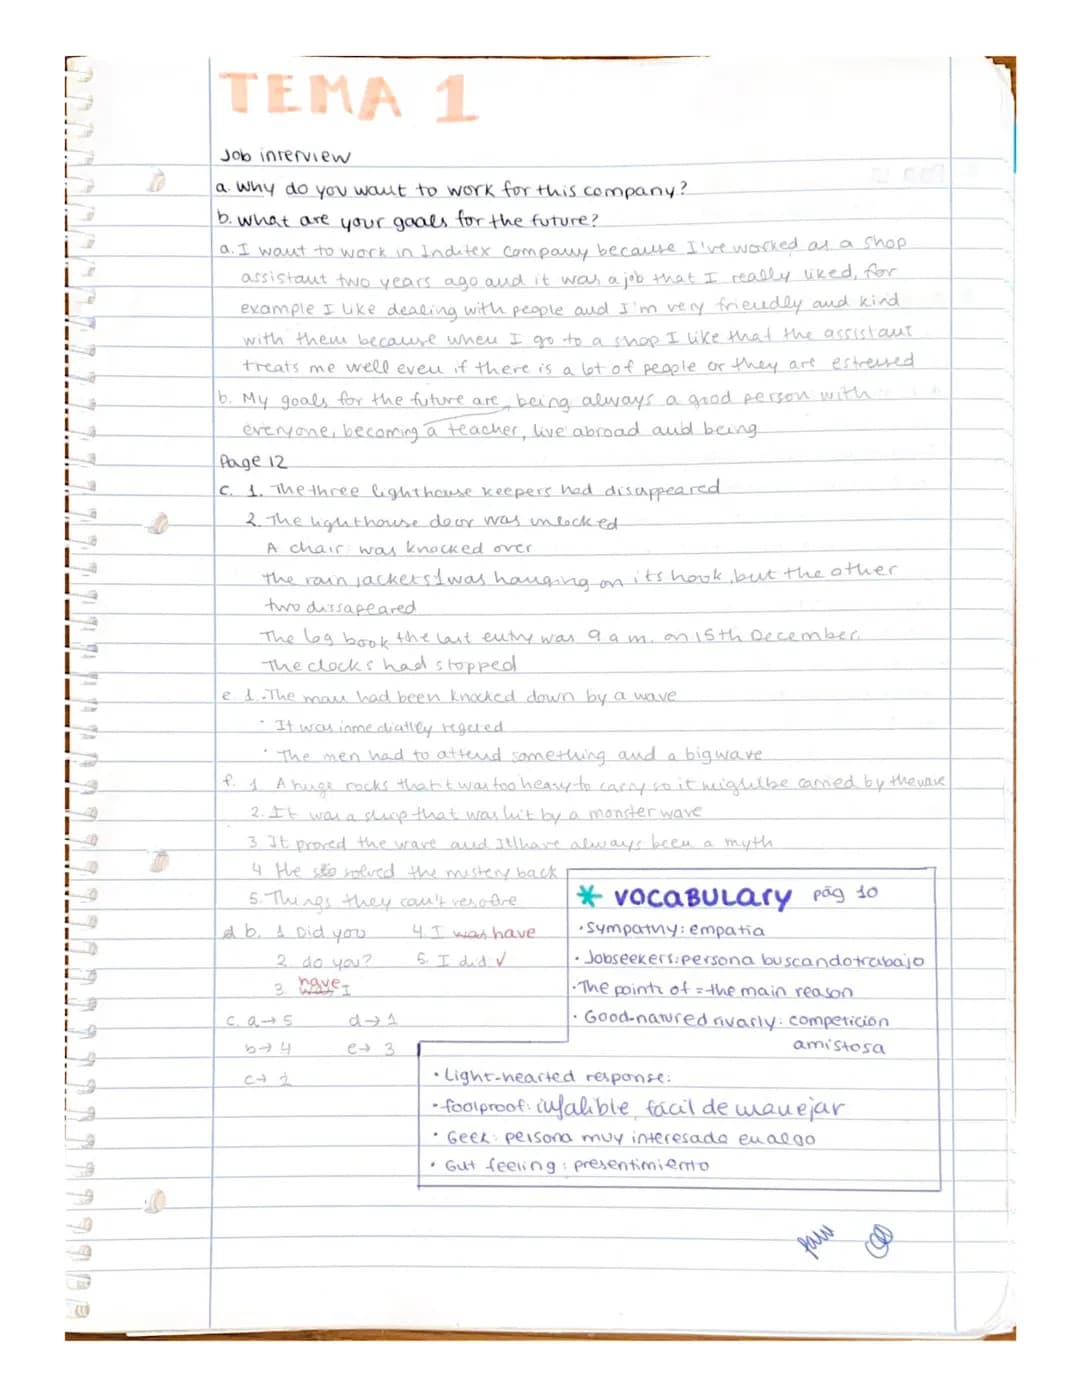 TEMA 1
Job interview
a. Why do you want to work for this company?
b. what are your goals for the future?
a. I want to work in Inditex company because I've worked as a shop
assistant two years ago and it was a job that I really liked, for
example I like dealing with people and I'm very friendly and kind
with them because when I go to a shop I like that the assistant
treats me well even if there is a lot of people or they are estressed
b. My goals for the future are, being always a good person with
everyone, becoming a teacher, live abroad and being
Page 12
c. 1. The three lighthouse keepers had disappeared
2. The lighthouse door was unlocked
A chair was knocked over
The rain jackets 1 was hanging on its hook, but the other
two dissapeared
The log book the last entry was 9 a.m. on 15th December.
The clocks had stopped
e 1. The man had been knocked down by a wave
· It was inmediatlly
· The men had to attend something and a big wave
f. 1 A huge rocks that it was too heavy to carry so it might be carried by the wave
2. It was a ship that was hit by a monster wave
3 It proved the wave and have always been a myth
4 He solved the mistery back
5. Things they can't
d b. 1 Did you 4. I was have
2 do you? 5. I did ✓
3. have I
c. a→5 d→1
b→4 e→3
c→2
* VOCABULARY pág 10
· Sympathy: empatia
· Jobseekers: persona buscando trabajo
· The point of = the main reason
· Good-natured rivarly: competición
amistosa
· Light-hearted response:
· foolproof: infalible, fácil de manejar
· Geek: persona muy interesada en algo
· Gut feeling: presentimiento